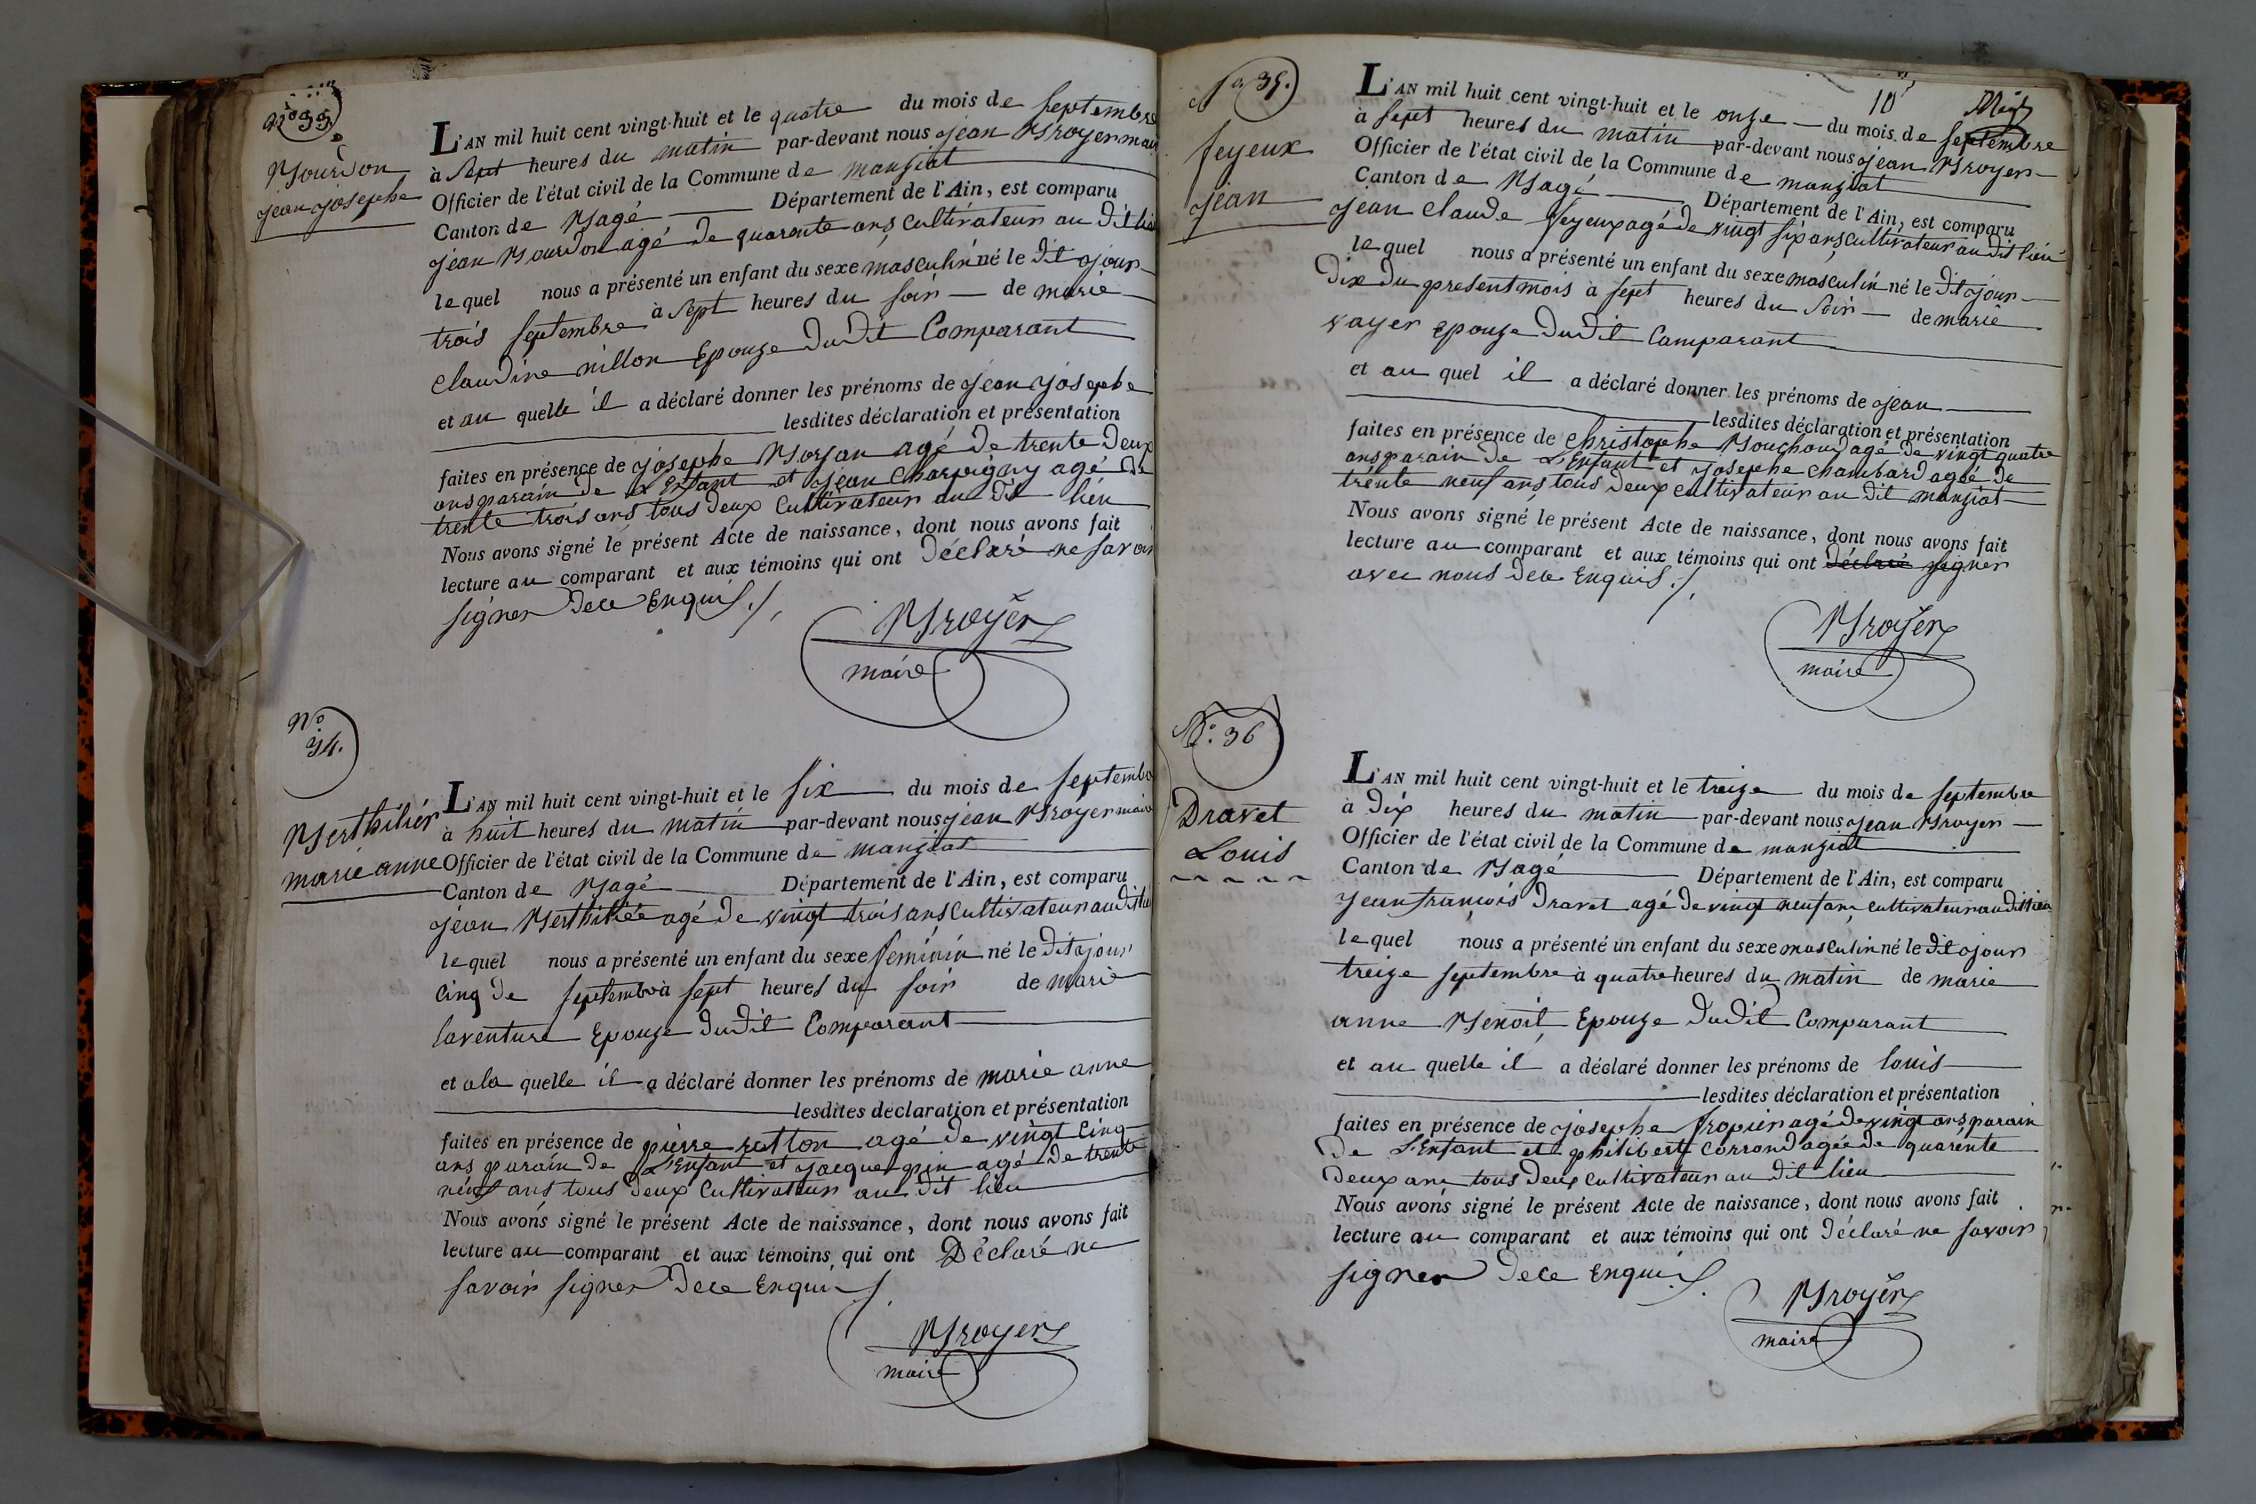 N° 33.
Bourdon
jean josephe
L'AN mil huit cent vingt-huit et le quatre du mois de septembre
à sept heures du matin par-devant nous jean Broyer maire
Officier de l'état civil de la Commune de manziat
Canton de Bagé Département de l'Ain, est comparu
jean Bourdon agé de quarente ans cultivateur au dit lieu
le quel nous a présenté un enfant du sexe masculin né le dit jour
trois septembre à sept heures du soir de marie
claudine nillon Epouze du dit Comparant
et au quelle il a déclaré donner les prénoms de jean josephe
lesdites déclaration et présentation
faites en présence de josephe Boyau agé de trente deux
ans parain de L'Enfant et jean Charvigny agé de
trente trois ans tous deux Cultivateur au dit lieu
Nous avons signé le présent Acte de naissance, dont nous avons fait
lecture au comparant et aux témoins qui ont déclaré ne savoir
signer dece Enquis ./.
Broyer
maire
N° 34.
Berthilier
marie anne
L'AN mil huit cent vingt-huit et le six du mois de septembre
à huit heures du matin par-devant nous jean Broyer maire
Officier de l'état civil de la Commune de manziat
Canton de Bagé Département de l'Ain, est comparu
jean Berthiliée agé de vingt trois ans cultivateur au dit lieu
le quel nous a présenté un enfant du sexe feminin né le dit jour
cinq de septembre à sept heures du soir de marie
laventure Epouze du dit Comparant
et a la quelle il a déclaré donner les prénoms de marie anne
lesdites déclaration et présentation
faites en présence de pierre ratton agé de vingt cinq
ans parain de L'Enfant et jacque pin agé de trente
neuf ans tous deux Cultivateur au dit lieu
Nous avons signé le présent Acte de naissance, dont nous avons fait
lecture au comparant et aux témoins qui ont Déclaré ne
savoir signer dece Enquis ./.
Broyer
maire
10
N° 35.
feyeux
jean
L'AN mil huit cent vingt-huit et le onze du mois de septembre
à sept heures du matin par-devant nous jean Broyer
Officier de l'état civil de la Commune de manziat
Canton de Bagé Département de l'Ain, est comparu
jean claude feyeux agé de vingt six ans cultivateur au dit lieu
le quel nous a présenté un enfant du sexe masculin né le dit jour
dix du present mois à sept heures du soir de marie
voyer Epouze du dit Comparant
et au quel il a déclaré donner les prénoms de jean
lesdites déclaration et présentation
faites en présence de christophe Bouchoud agé de vingt quatre
ans parain de L'Enfant et josephe chambard agée de
trente neuf ans tous deux cultivateur au dit manziat
Nous avons signé le présent Acte de naissance, dont nous avons fait
lecture au comparant et aux témoins qui ont déclaré signer
avec nous dece Enquis ./.
Broyer
maire
N° 36
Dravet
Louis
L'AN mil huit cent vingt-huit et le treize du mois de septembre
à dix heures du matin par-devant nous jean Broyer
Officier de l'état civil de la Commune de manziat
Canton de Bagé Département de l'Ain, est comparu
jean françois Dravet agé de vingt neuf ans cultivateur au dit lieu
le quel nous a présenté un enfant du sexe masculin né le dit jour
treize septembre à quatre heures du matin de marie
anne Benoit Epouze du dit Comparant
et au quelle il a déclaré donner les prénoms de louis
lesdites déclaration et présentation
faites en présence de josephe fropier agé de vingt ans parain
de L'Enfant et philibert corrond agée de quarente
deux ans tous deux cultivateur au dit lieu
Nous avons signé le présent Acte de naissance, dont nous avons fait
lecture au comparant et aux témoins qui ont déclaré ne savoir
signer dece Enquis ./.
Broyer
maire